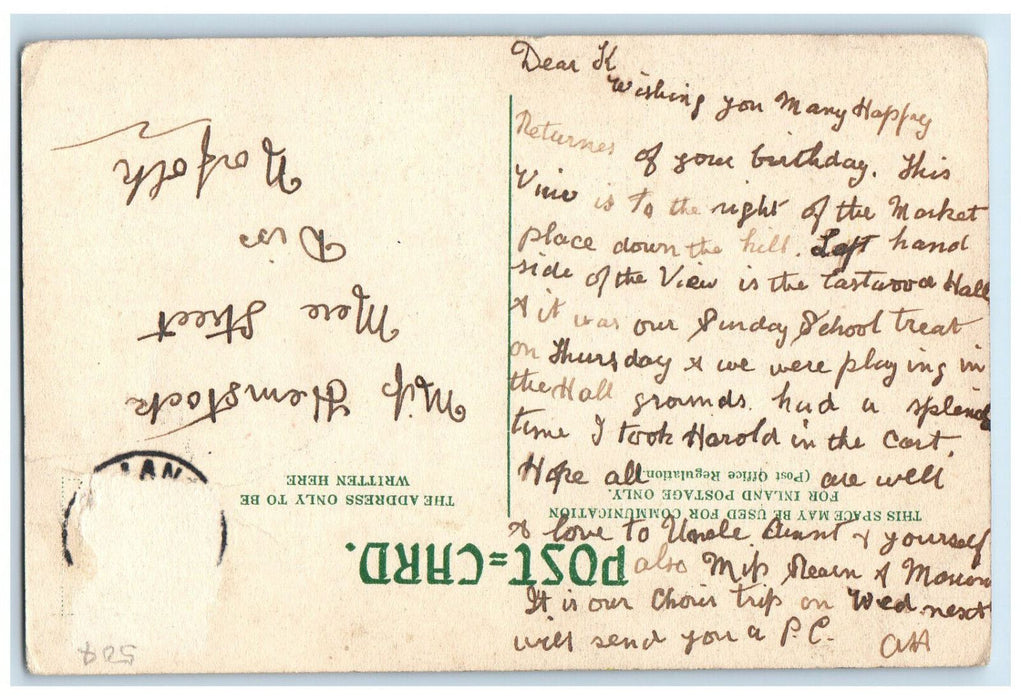 Dear K
Wishing you Many Happy
Returnes of your birthday. This
View is to the right of the Market
place down the hill. Left hand
side of the View is the Eastwood Hall
& it was our Sunday School treat
on Thursday & we were playing in
the Hall grounds. had a splend
time I took Harold in the Cart.
Hope all are well
& love to Uncle Aunt & yourself
also Miss Hearn & Marion
It is our Choir trip on Wed next
will send you a P.C.
AH
POST=CARD.
THIS SPACE MAY BE USED FOR COMMUNICATION
FOR INLAND POSTAGE ONLY.
(Post Office Regulation.)
THE ADDRESS ONLY TO BE
WRITTEN HERE
Miss Hemstock
Mere Street
Diss
Norfolk
509